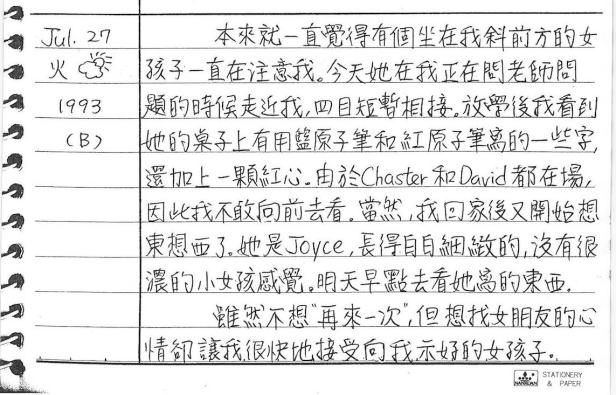 Jul. 27
火
1993
(B)
本來就一直覺得有個坐在我斜前方的女
孩子一直在注意我。今天她在我正在問老師問
題的時候走近我,四目短暫相接。放學後我看到
她的桌子上有用藍原子筆和紅原子筆寫的一些字,
還加上一顆紅心。由於Chaster和David都在場,
因此我不敢向前去看。當然,我回家後又開始想
東想西了。她是Joyce,長得白白細緻的,沒有很
濃的小女孩感覺。明天早點去看她寫的東西.
雖然不想"再來一次",但想找女朋友的心
情卻讓我很快地接受向我示好的女孩子。
STATIONERY
& PAPER